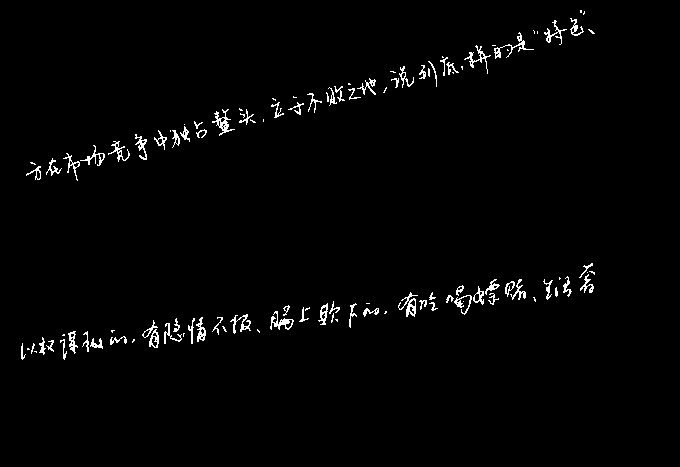 方在市场竞争中独占鳌头,立于不败之地,说到底,拼的是“特色、
以权谋私的,有隐情不报、瞒上欺下的,有吃喝嫖赌、生活奢